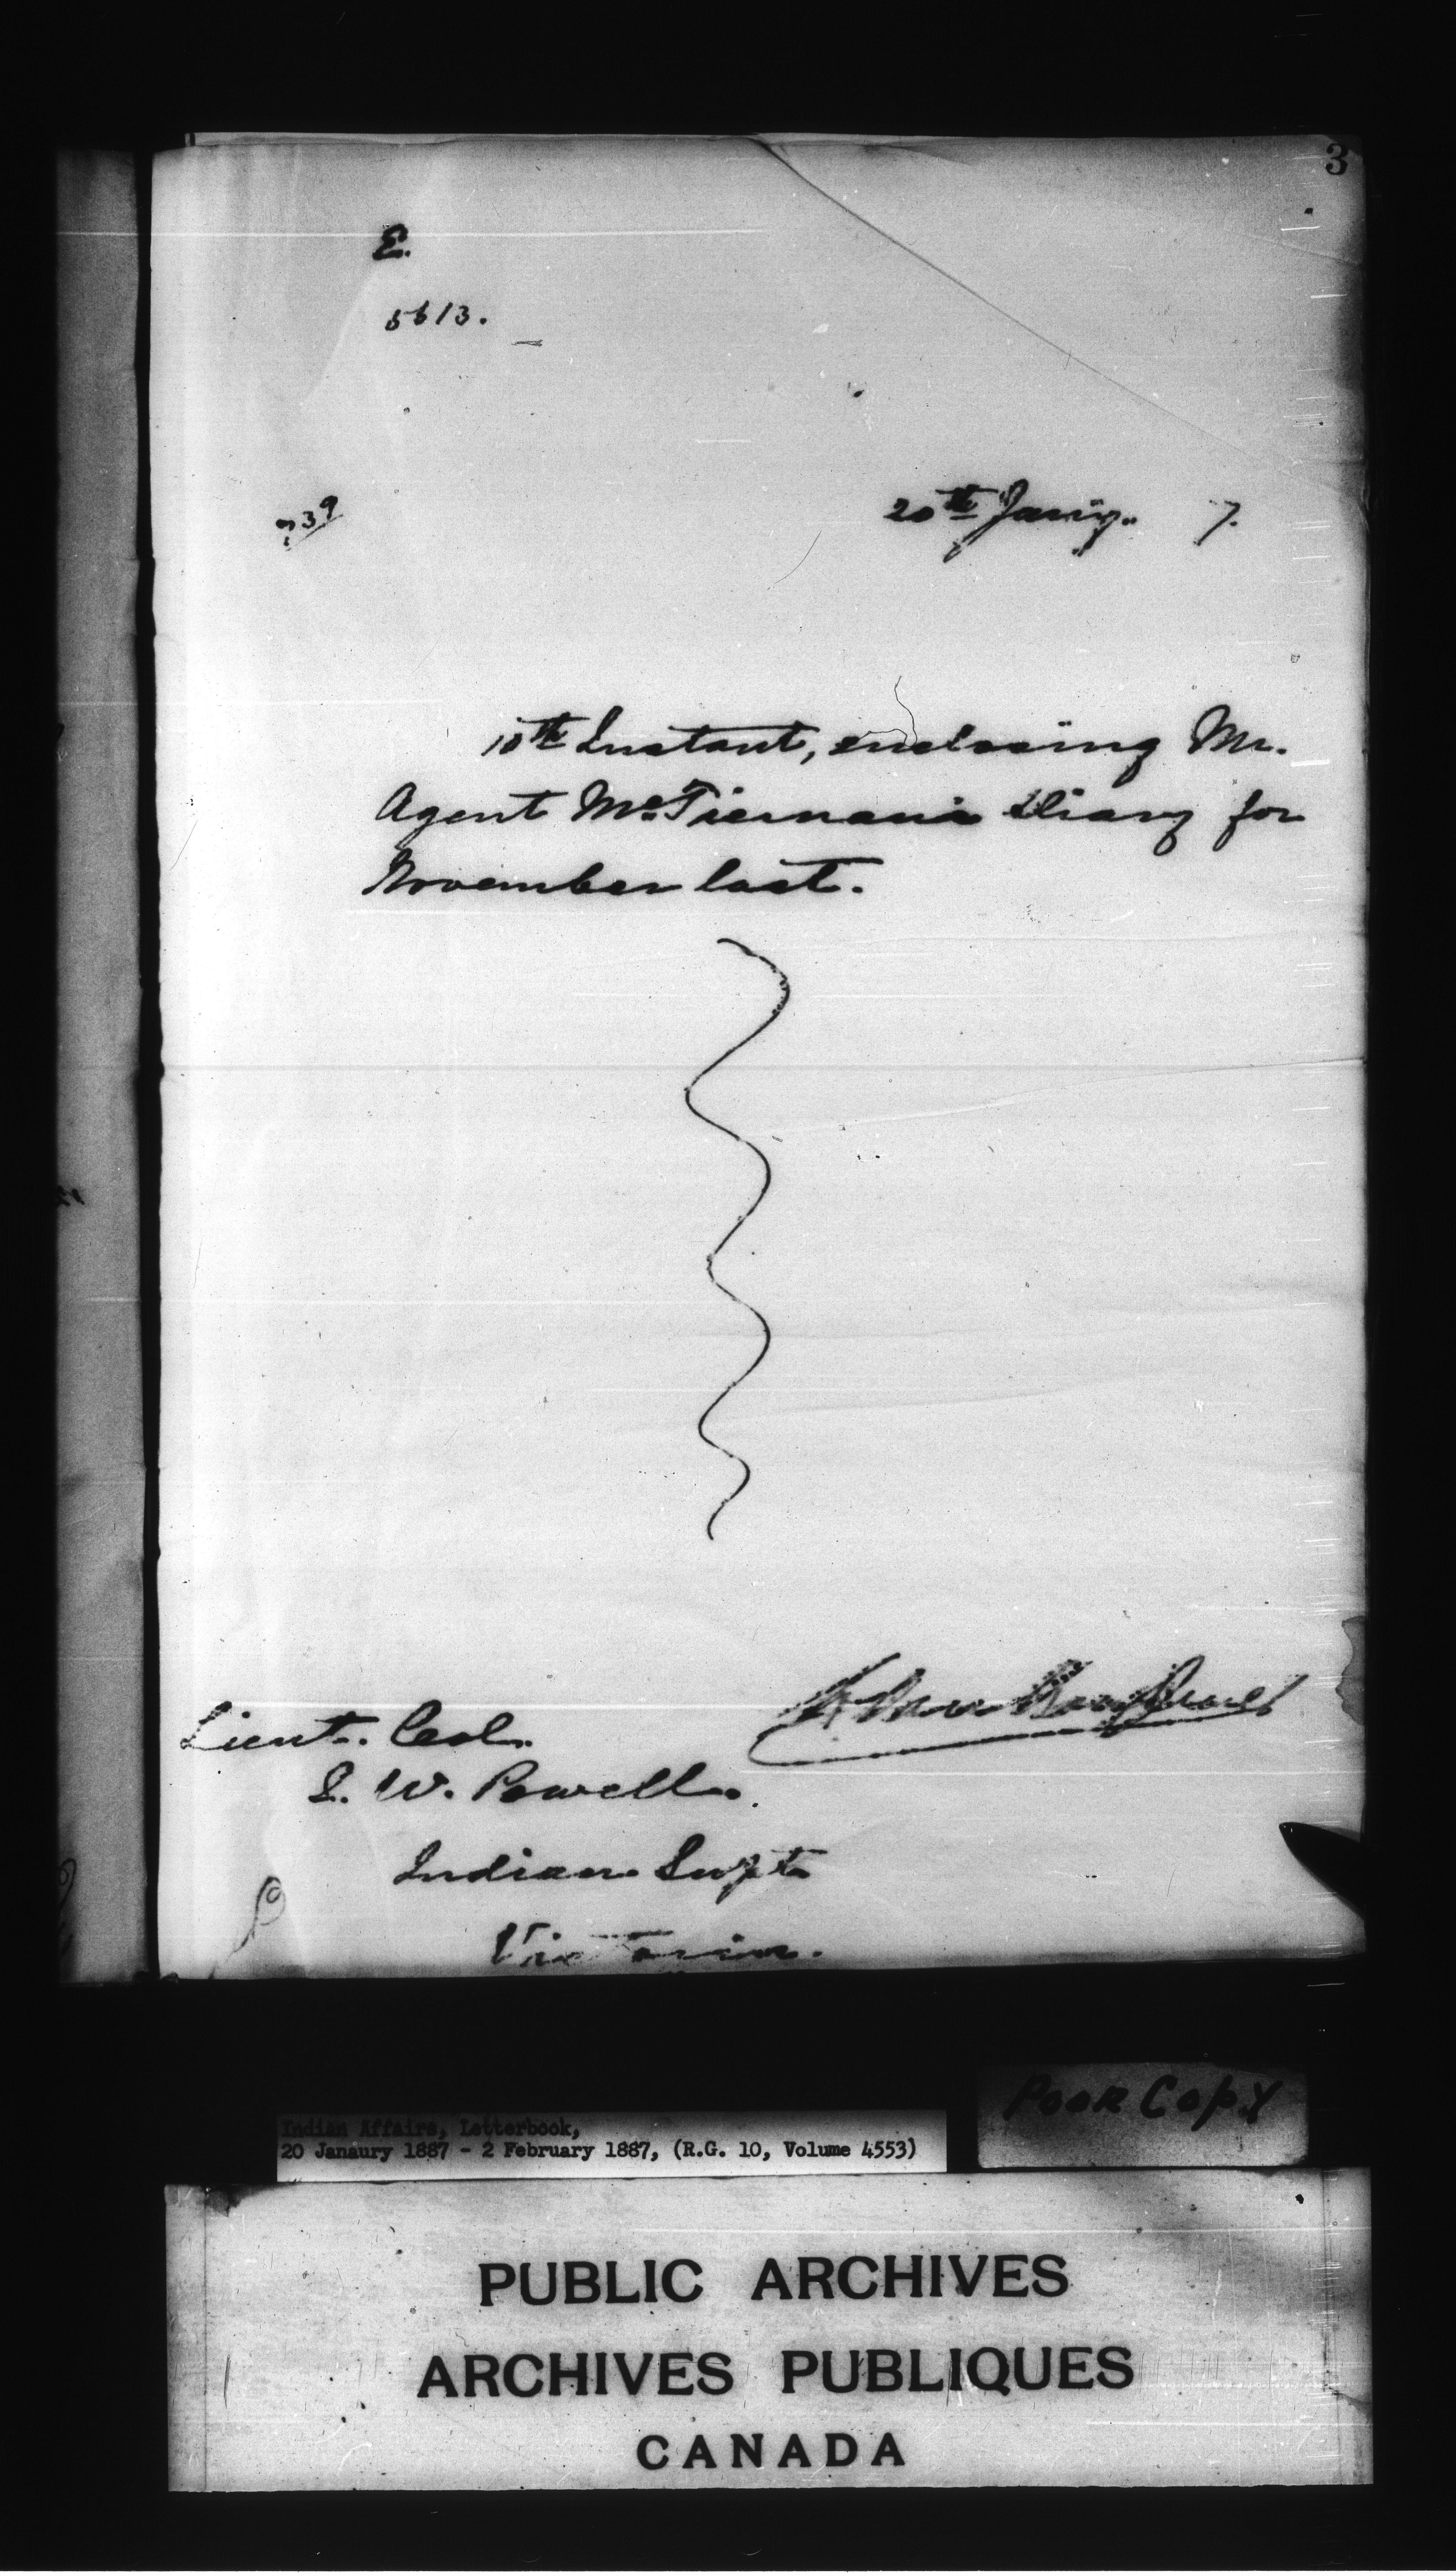 3
E.
5613.
20th Jany. 7.
10th Instant, enclosing Mr.
Agent McTiernan's Diary for
November last.
Lieut. Col.
I. W. Powell.
Indian Supt
Victoria.
Poor Copy
Indian Affairs, Letterbook,
20 Janaury 1887 - 2 February 1887, (R.G. 10, Volume 4553)
PUBLIC ARCHIVES
ARCHIVES PUBLIQUES
CANADA